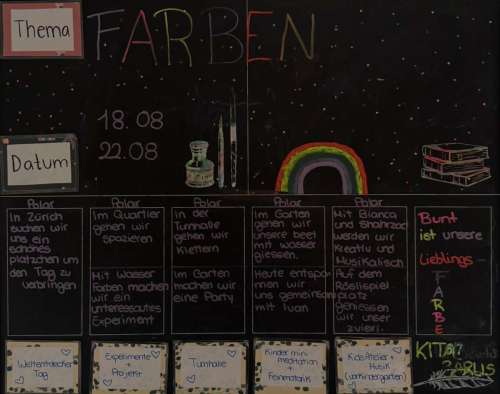 Thema
FARBEN
Datum
18.08
22.08
Polar
Polar
Polar
Polar
Polar
In Zürich
suchen wir
uns ein
schönes
plätzchen um
den Tag zu
verbringen
Im Quartier
gehen wir
spazieren
Mit Wasser
Farben machen
wir ein
interessantes
Experiment
in der
Turnhalle
gehen wir
klettern
Im Garten
machen wir
eine Party
Im Garten
gehen wir
unsere beet
mit wasser
giessen.
Heute entspa-
nnen wir
uns gemeinsam
mit luan
Mit Bianca
und Shahrzad
werden wir
Kreativ und
Musikalisch
Auf dem
Röslispiel
platz
geniessen
wir unser
zvieri.
Bunt
ist unsere
Lieblings-
F
A
R
B
E
Weltentdecker
Tag
Experimente
+
Projekte
Turnhalle
Kinder mini
meditation
+
Feinmotorik
Kids Atelier +
Musik
(Vorkindergarten)
KITA